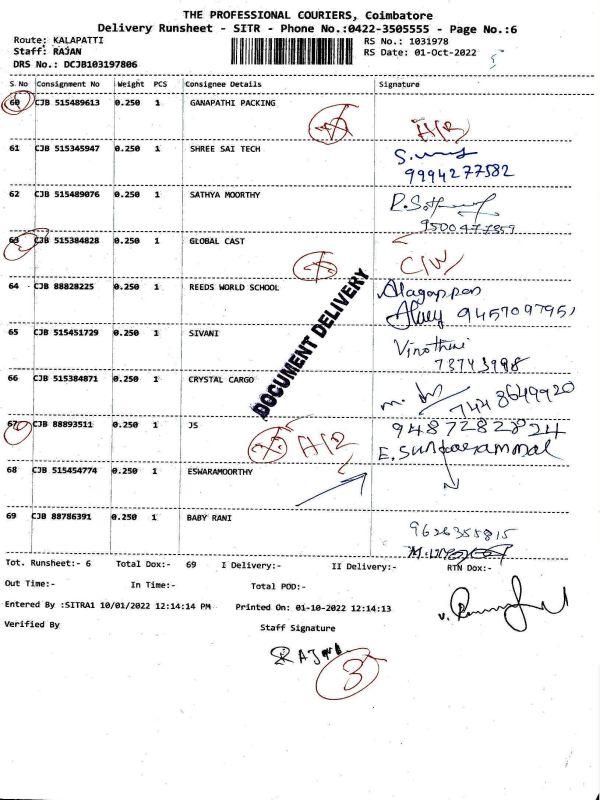 THE PROFESSIONAL COURIERS, Coimbatore
Delivery Runsheet - SITR - Phone No.:0422-3505555 - Page No.:6
Route: KALAPATTI
RS No.: 1031978
Staff: RAJAN
RS Date: 01-Oct-2022
DRS No.: DCJB103197806
S.No Consignment No Weight PCS Consignee Details Signature
60 CJB 515489613 0.250 1 GANAPATHI PACKING
61 CJB 515345947 0.250 1 SHREE SAI TECH
9994277582
62 CJB 515489076 0.250 1 SATHYA MOORTHY
63 CJB 515384828 0.250 1 GLOBAL CAST
64 CJB 88828225 0.250 1 REEDS WORLD SCHOOL Alagappan
9457097951
65 CJB 515451729 0.250 1 SIVANI
DOCUMENT DELIVERY
66 CJB 515384871 0.250 1 CRYSTAL CARGO
7448649920
67 CJB 88893511 0.250 1 JS 9487282824
68 CJB 515454774 0.250 1 ESWARAMOORTHY
69 CJB 88786391 0.250 1 BABY RANI
9626355815
Tot. Runsheet:- 6 Total Dox:- 69 I Delivery:- II Delivery:- RTN Dox:-
Out Time:- In Time:- Total POD:-
Entered By :SITRA1 10/01/2022 12:14:14 PM Printed On: 01-10-2022 12:14:13
Verified By
Staff Signature
RAJAN
3